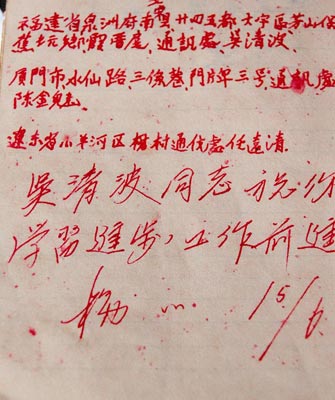 福建省泉洲府南 廿四五都 大宇区茅山保
蕉坑鄉 厝 通訊處 吳清波
厦門市水仙路 三條巷 門牌三号 通訊處
陳金
遼东省 羊河区 楊村通信處任遠清
吳清波同志
学習進步,工作前進
楊 15/6